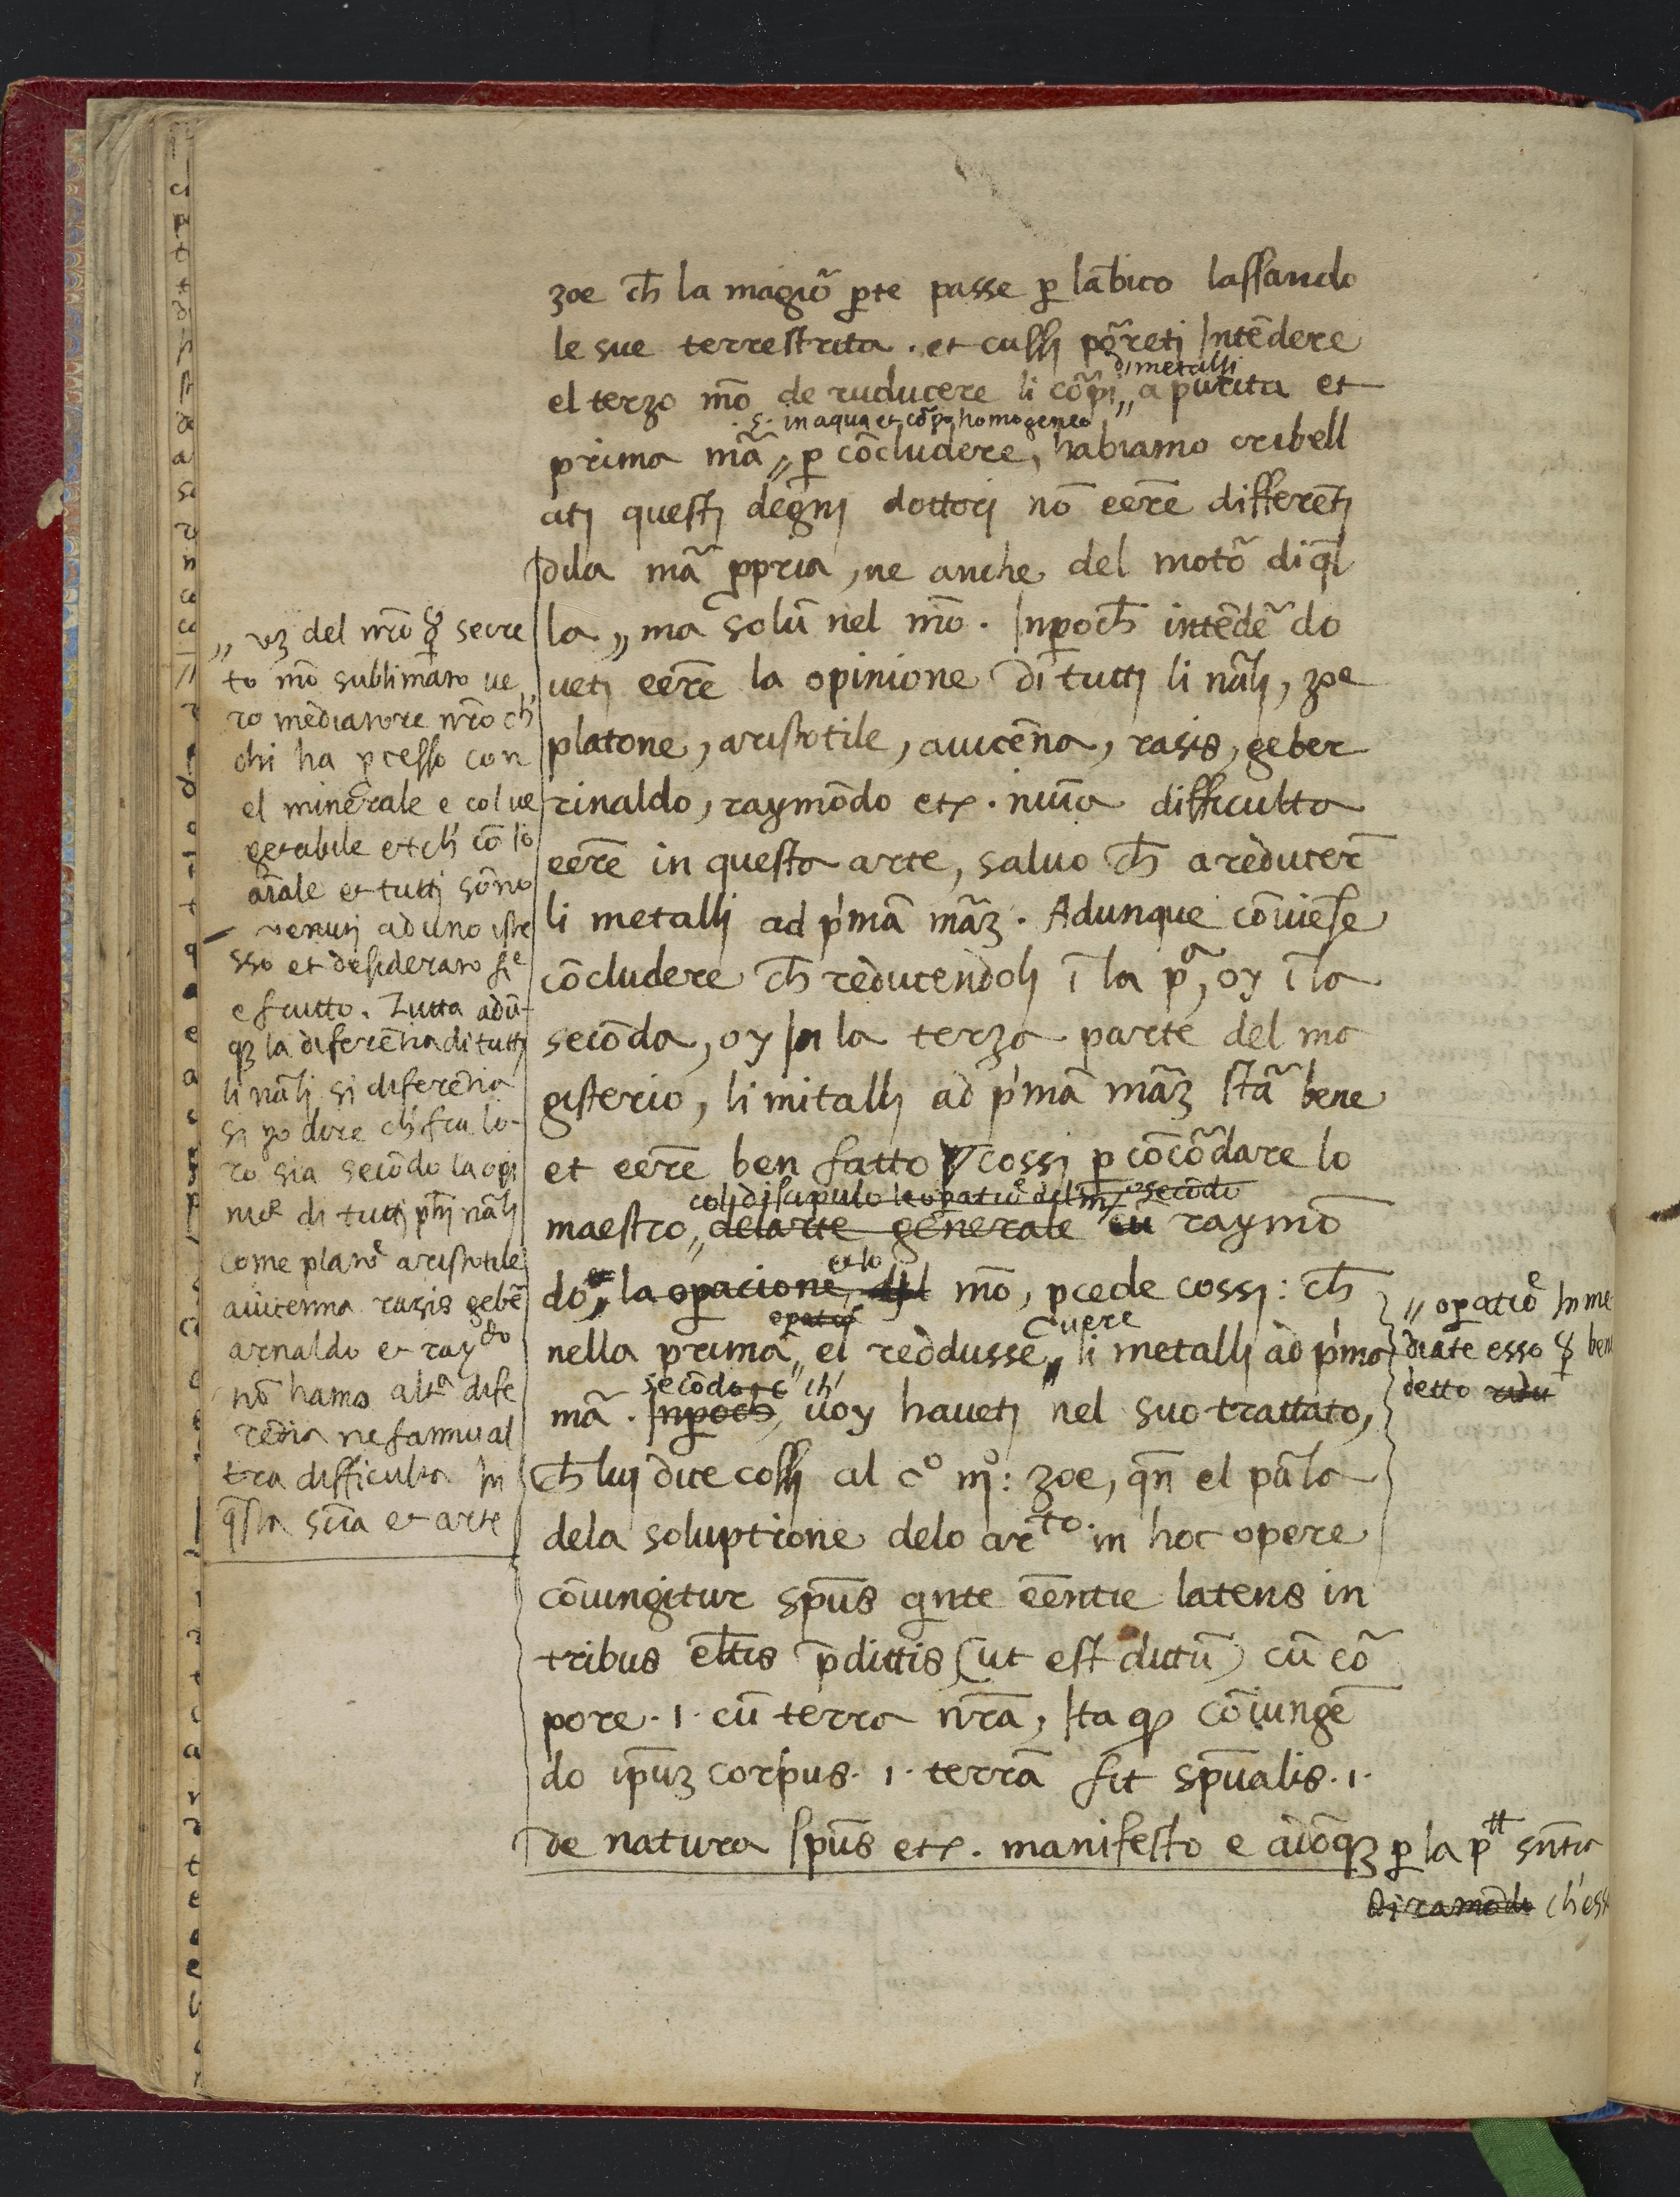 zoe ch̄ la magiō ꝑte passe ꝑ lābico lassando
le sue terrestrita . et cussj pōretj Intēdere
di metallj
el terzo mō de ruducere li cōrpi „ a purita et
.s. in aqua et cōrpo homogeneo
prima mā „ ꝑ cōcludere, habiamo cribell
atj questj degnj dottorj nō eere differētj
dila mā ꝓpria, ne anche del motō di q̄l
la „ ma solū nel mō . Inꝑoch̄ intēdē do
uetj eere la opinione di tuttj li nālj, zoe
platone, aristotile, auicēna, rasis, geber
rinaldo, raymōdo etc . niuna difficulta
eere in questa arte, saluo ch̄ a reducer̄
li metallj ad p'mā māʒ . Adunque cōuiese
cōcludere ch̄ reducendolj ī la pᵃ, oy ī la
secōda, oy In la terza parte del ma
gisterio, li mitallj ad p'mā māʒ stā bene
et eere ben fatto cossj ꝑ cōcōdare lo
colj discipulo le opatiōe del mō secōdo
maestro „ delarte generale raymō
et lo
do „ la oꝑacione, del mō, ꝓcede cossj : ch̄
opatiōe
uere
nella prima „ el reddusse „ li metallj ad p'ma
secōdo ch'
mā . Inꝑoch̄, uoy hauetj nel suo trattato,
ch̄ luj dice cossj al cº mº : zoe, qn̄ el pāla
dela soluptione delo arᵗᵒ. in hoc opere
cōiungitur spūs qnte eēntie latens in
tribus eltīs p̄dittis (ut est dictū) cū cō
pore . i . cū terra nrā, Ita ꝙ cōiungē
do ipūʒ corpus . i . terrā fit spūalis . i .
de natura spūs etc . manifesto e adōqʒ ꝑ la pᵗᵗ sn̄tia
Di ramōdo ch'ess
„ vʒ del nrō secre
to mō sublimato ue
ro mediatore nrō ch'
chi ha ꝓcesso con
el minerale e col ue
getabile et ch' cō lo
aiāle et tuttj sōno
venutj ad uno iste
sso et desiderato fiᵉ
e frutto . Tutta adū
qʒ la diferētia di tuttj
li nālj si diferētia
si po dire ch' fra lo
ro sia secōdo la opi
niōe di tuttj pħj nālj
come platoᵉ aristotile
auicenna rasis gebē
arnaldo et rayᵈᵒ
nō hano altᵃ dife
rētia ne fannu al
tra difficulta In
q̄sta sciā et arte
„ oꝑatiōᵉ Inme
diate esso ben
detto